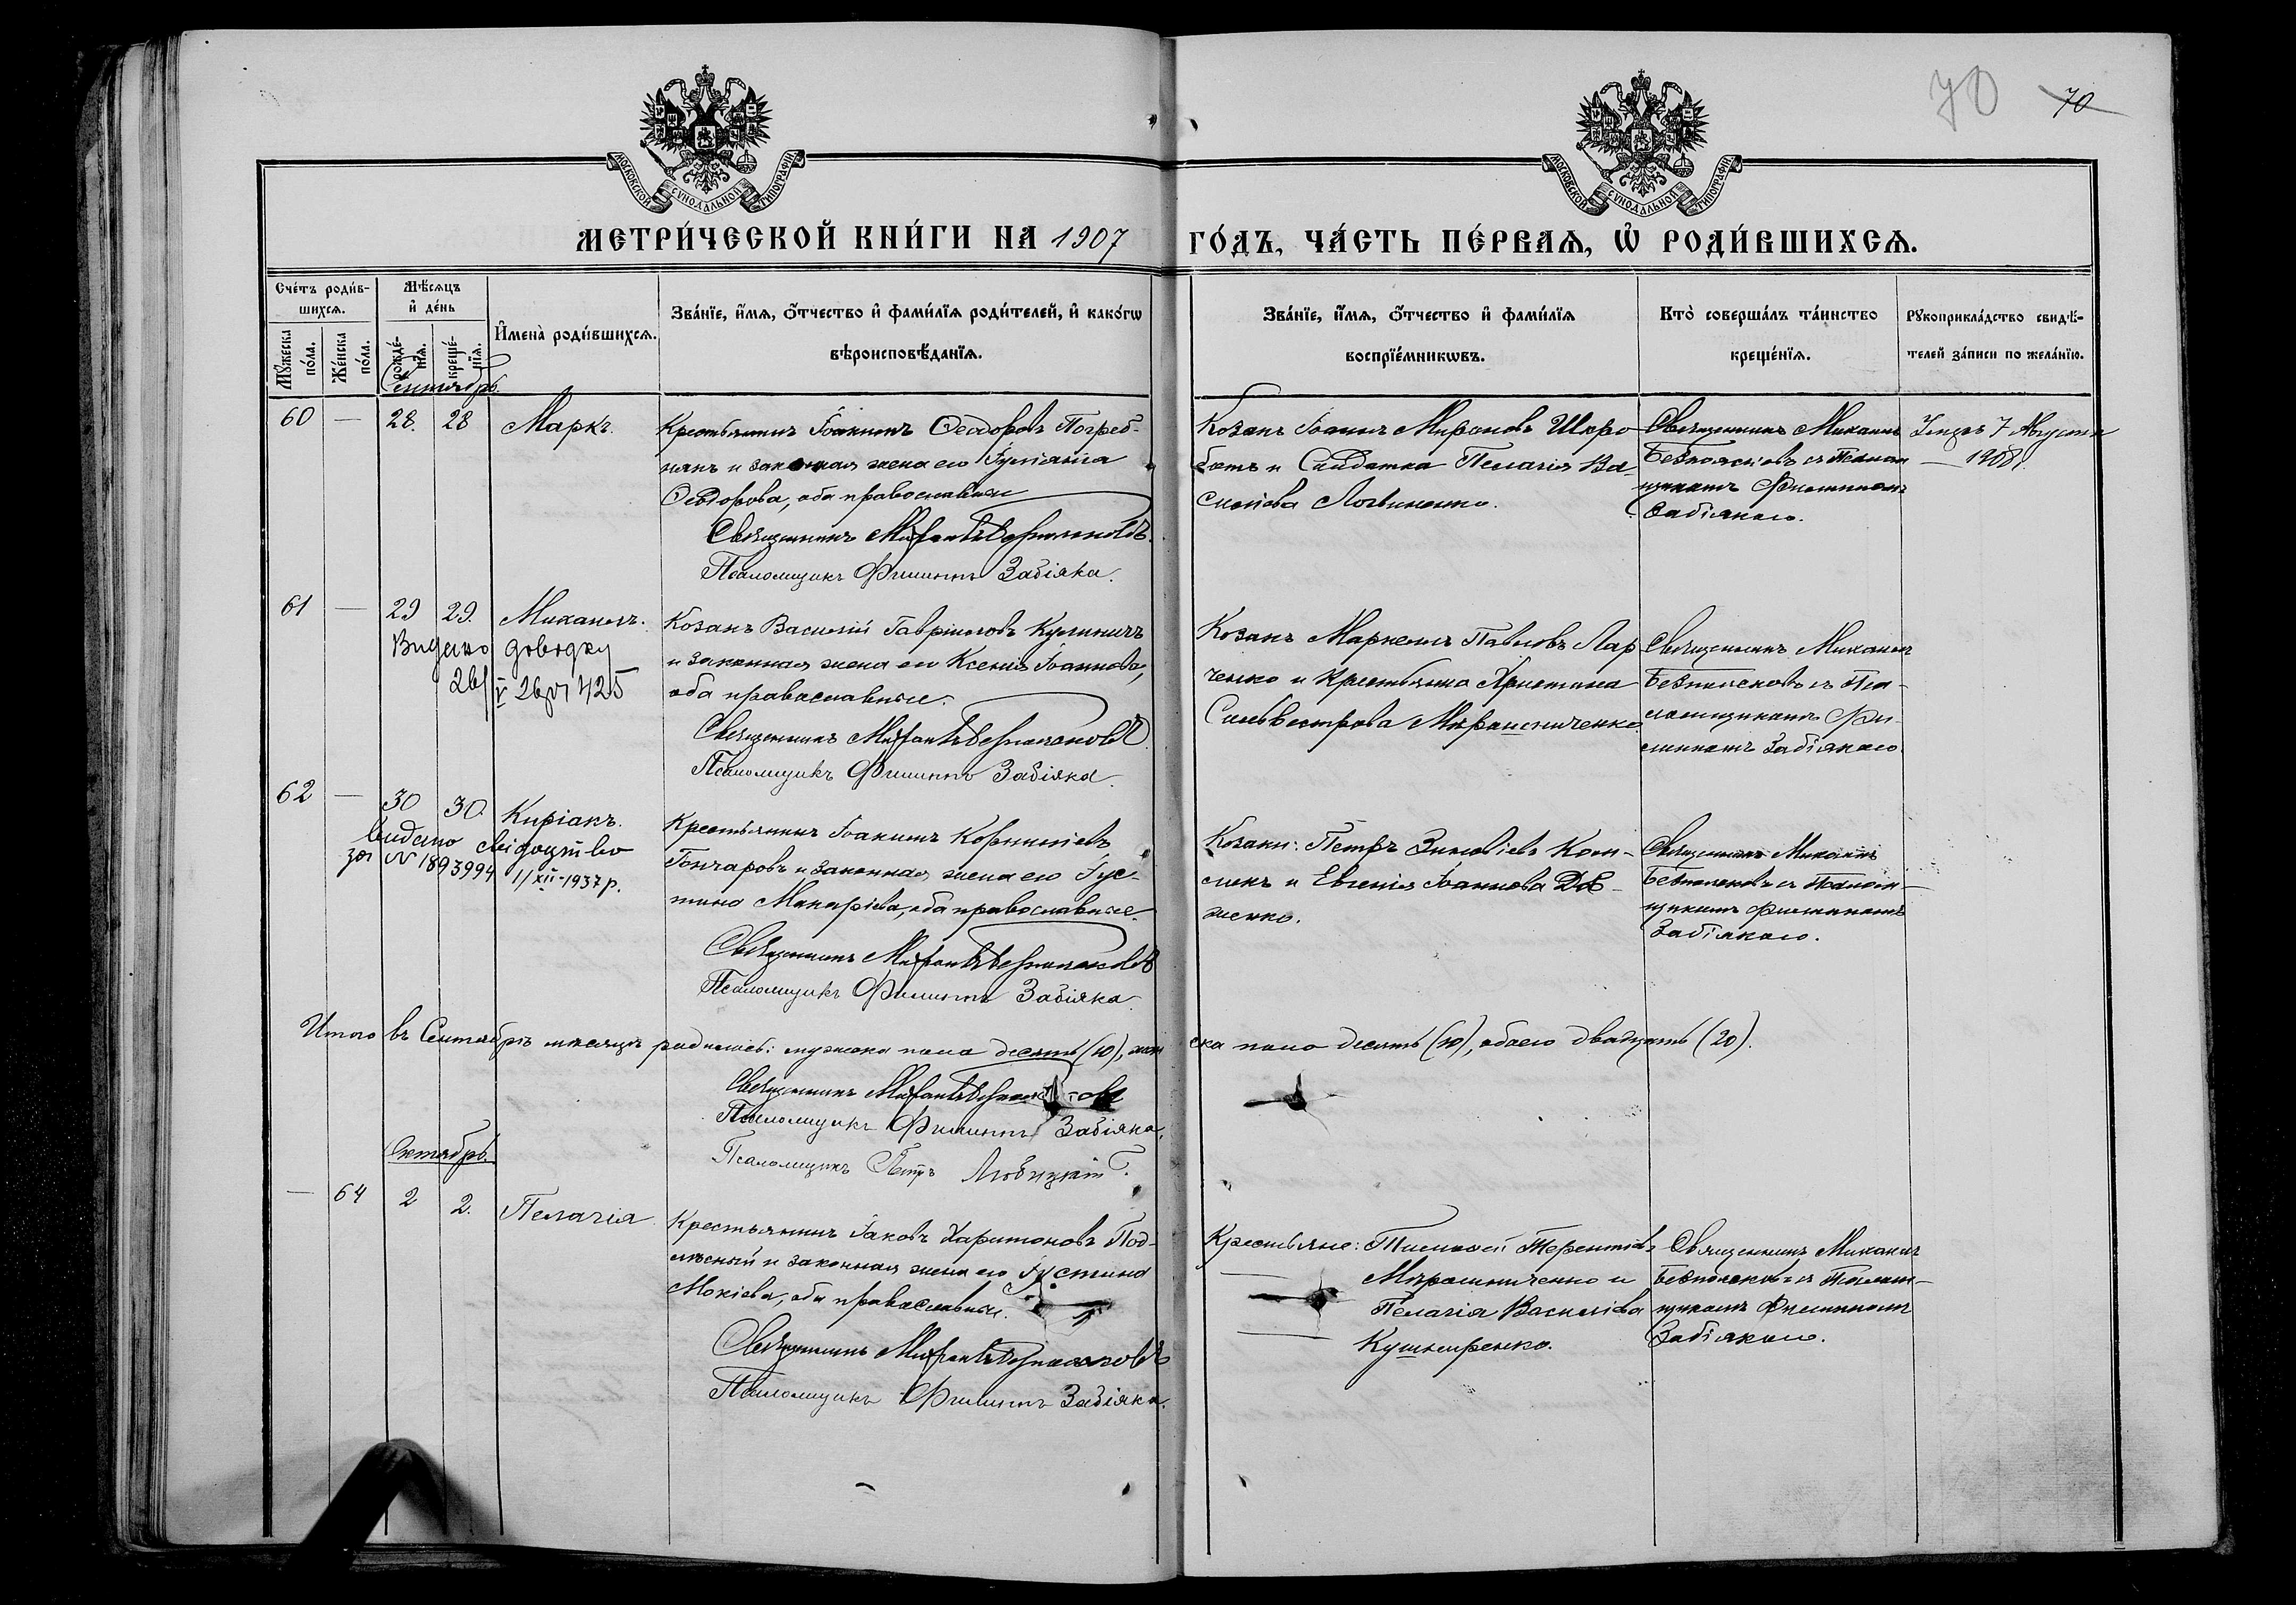 70 70
МОСКОВСКОЙ СѴНОДАЛЬНОЙ ТИПОГРАФІИ
МОСКОВСКОЙ СѴНОДАЛЬНОЙ ТИПОГРАФІИ
МЕТРИ́ЧЕСКОЙ КНИ́ГИ НА 1907
ГО́ДЪ, ЧА́СТЬ ПЕ́РВАѦ, Ѡ҆ РОДИ́ВШИХСѦ.
Сче́тъ роди́в-
шихсѧ.
Мꙋ́жеска по́ла.
Же́нска по́ла.
Мѣ́сѧцъ
и҆ де́нь
рожде́-нїѧ.
креще́-нїѧ.
И҆мена̀ роди́вшихсѧ.
Зва́нїе, и҆́мѧ, ѻ҆́тчество и҆ фами́лїѧ роди́телей, и҆ како́гѡ
вѣроисповѣ́данїѧ.
Зва́нїе, и҆́мѧ, ѻ҆́тчество и҆ фами́лїѧ
воспрїе́мникѡвъ.
Кто̀ соверша́лъ та́инство
креще́нїѧ.
Рꙋкоприкла́дство свидѣ́-
телей за́писи по жела́нїю.
Сентябрь.
60 — 28. 28 Маркъ.
Крестьянинъ Іоакимъ Ѳеодоровъ Погреб-
някъ и законная жена его Іуліанія
Ѳеодорова, оба православные
Священникъ Михаилъ
Псаломщикъ Филиппъ Забіяка.
Козакъ Іоаннъ Мироновъ Шкро
ботъ и Солдатка Пелагія Ва-
силіева Логвиненко.
Священникъ Михаилъ
съ Псалом
щикомъ Филиппомъ
Забіякою.
Умеръ 7 Августа
— 1908 г.
61 — 29 29. Михаилъ.
Видано довідку
26/V 425
Козакъ Василій Гавріиловъ Кулиничъ
и законная жена его Ксенія Іоаннова,
оба православные.
Священникъ Михаилъ
Псаломщикъ Филиппъ Забіяка.
Козакъ Маркеллъ Павловъ Лар
ченко и Крестьянка Христина
Сильвестрова Мирошниченко.
Священникъ Михаилъ
съ Пса-
ломщикомъ Фи-
липпомъ Забіякою.
62 — 30 30. Киріакъ.
Видано свідоцтво
за № 1893994 11/XII-1937р.
Крестьянинъ Іоакимъ Корниліевъ
Гончаровъ и законная жена его Іус-
тина Макаріева, оба православные.
Священникъ Михаилъ
Псаломщикъ Филиппъ Забіяка
Козаки: Петръ Зиновіевъ
и Евгенія Іоаннова
женко.
Священникъ Михаилъ
съ Псалом-
щикомъ Филиппомъ
Забіякою.
Итого въ Сентябрѣ мѣсяцѣ родилось: мужска пола десять (10), жен
ска пола десять (10), обоего двадцать (20).
Священникъ Михаилъ
Псаломщикъ Филиппъ Забіяка.
Псаломщикъ Петръ Любицкій.
Октябрь.
— 64 2 2. Пелагія
Крестьянинъ Іаковъ Харитоновъ Под-
лѣсный и законная жена его Іустина
Мокіева, оба православные.
Священникъ Михаилъ
Псаломщикъ Филиппъ Забіяка.
Крестьяне: Тимофей Терентіевъ
Мирошниченко и
Пелагія Василіева
Кушниренко.
Священникъ Михаилъ
съ Псалом-
щикомъ Филиппомъ
Забіякою.